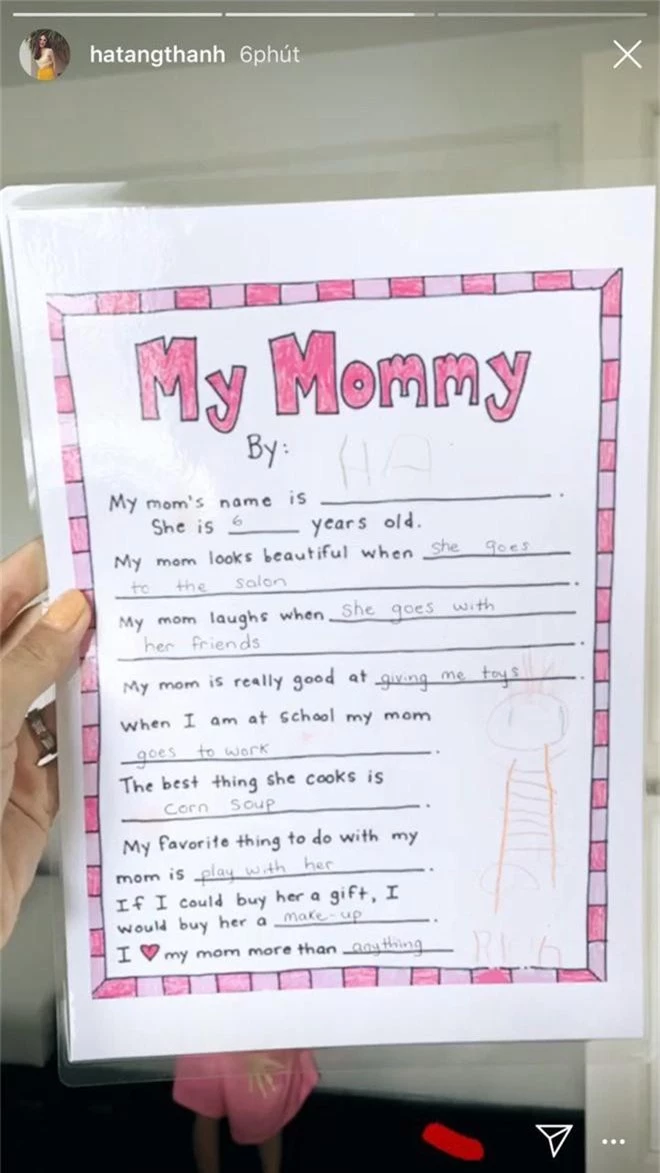 hatangthanh 6phút
My Mommy
By: HA
My mom's name is ____________.
She is 6 years old.
My mom looks beautiful when she goes
to the salon.
My mom laughs when she goes with
her friends.
My mom is really good at giving me toys.
When I am at school my mom
goes to work.
The best thing she cooks is
corn soup.
My favorite thing to do with my
mom is play with her.
If I could buy her a gift, I
would buy her a make-up.
I ♥ my mom more than anything